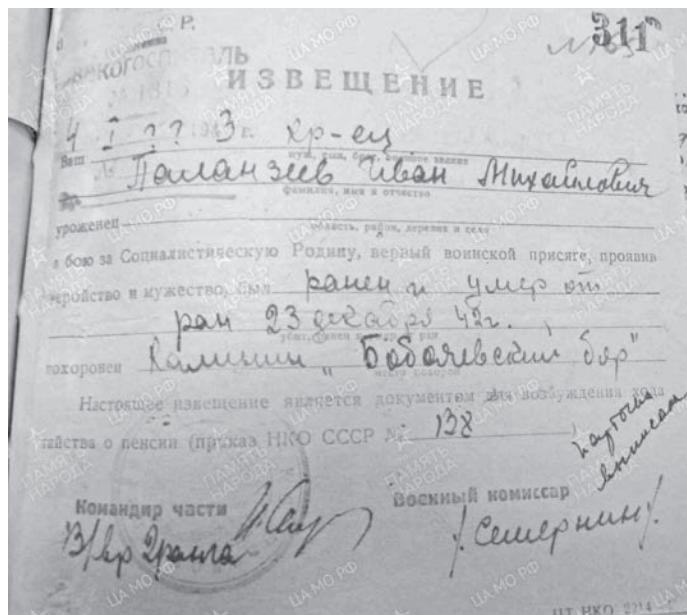 С. Р.
311
ЭВАКОГОСПИТАЛЬ
№ 1815
ИЗВЕЩЕНИЕ
4 I 1943 г. кр-ец
Ваш
муж, сын, брат, военное звание
Паланзеев Иван Михайлович
фамилия, имя и отчество
уроженец
область, район, деревня и село
в бою за Социалистическую Родину, верный воинской присяге, проявив
геройство и мужество, был ранен и умер от
ран 23 декабря 42 г.,
убит, ранен и умер от ран
похоронен Калинин „Бобачевский бор"
место похорон
Настоящее извещение является документом для возбуждения хода
тайства о пенсии (приказ НКО СССР № 138 )
карточка
выписана
Командир части
Военный комиссар
/Семернин/.
ШТ. НКО 2214
ПАМЯТЬ НАРОДА
ЦАМО.РФ